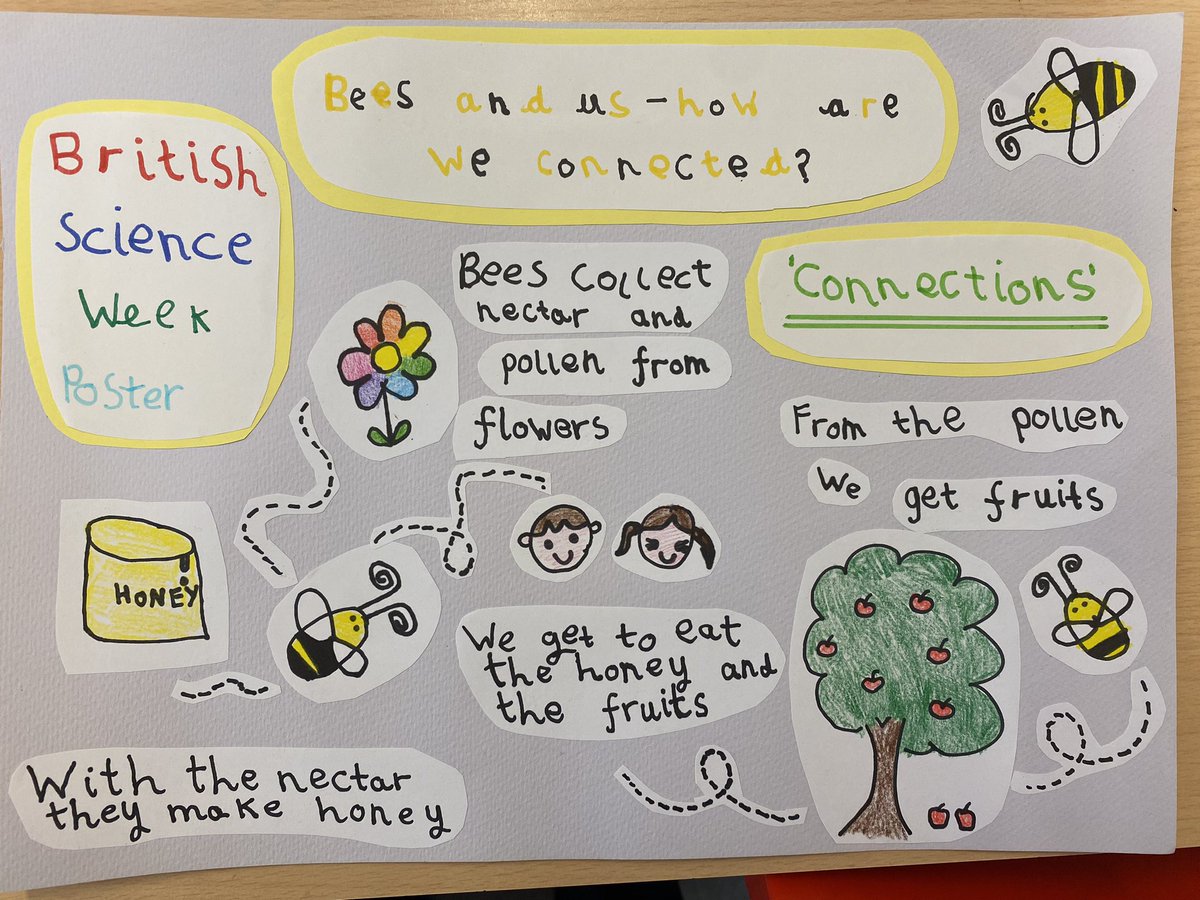 Bees and us - how are
we connected?
British
Science
Week
Poster
'Connections'
Bees collect
nectar and
pollen from
flowers
From the pollen
We
get fruits
HONEY
We get to eat
the honey and
the fruits
With the nectar
they make honey